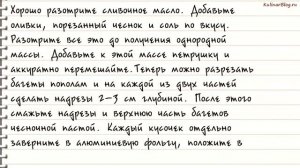 KulinarBlog.ru
Хорошо разотрите сливочное масло. Добавьте
оливки, порезанный чеснок и соль по вкусу.
Разотрите все это до получения однородной
массы. Добавьте к этой массе петрушку и
аккуратно перемешайте.Теперь можно разрезать
багеты пополам и на каждой из двух частей
сделать надрезы 2-3 см глубиной. После этого
смажьте надрезы и верхнюю часть багетов
чесночной пастой. Каждый кусочек отдельно
заверните в алюминиевую фольгу, положите в